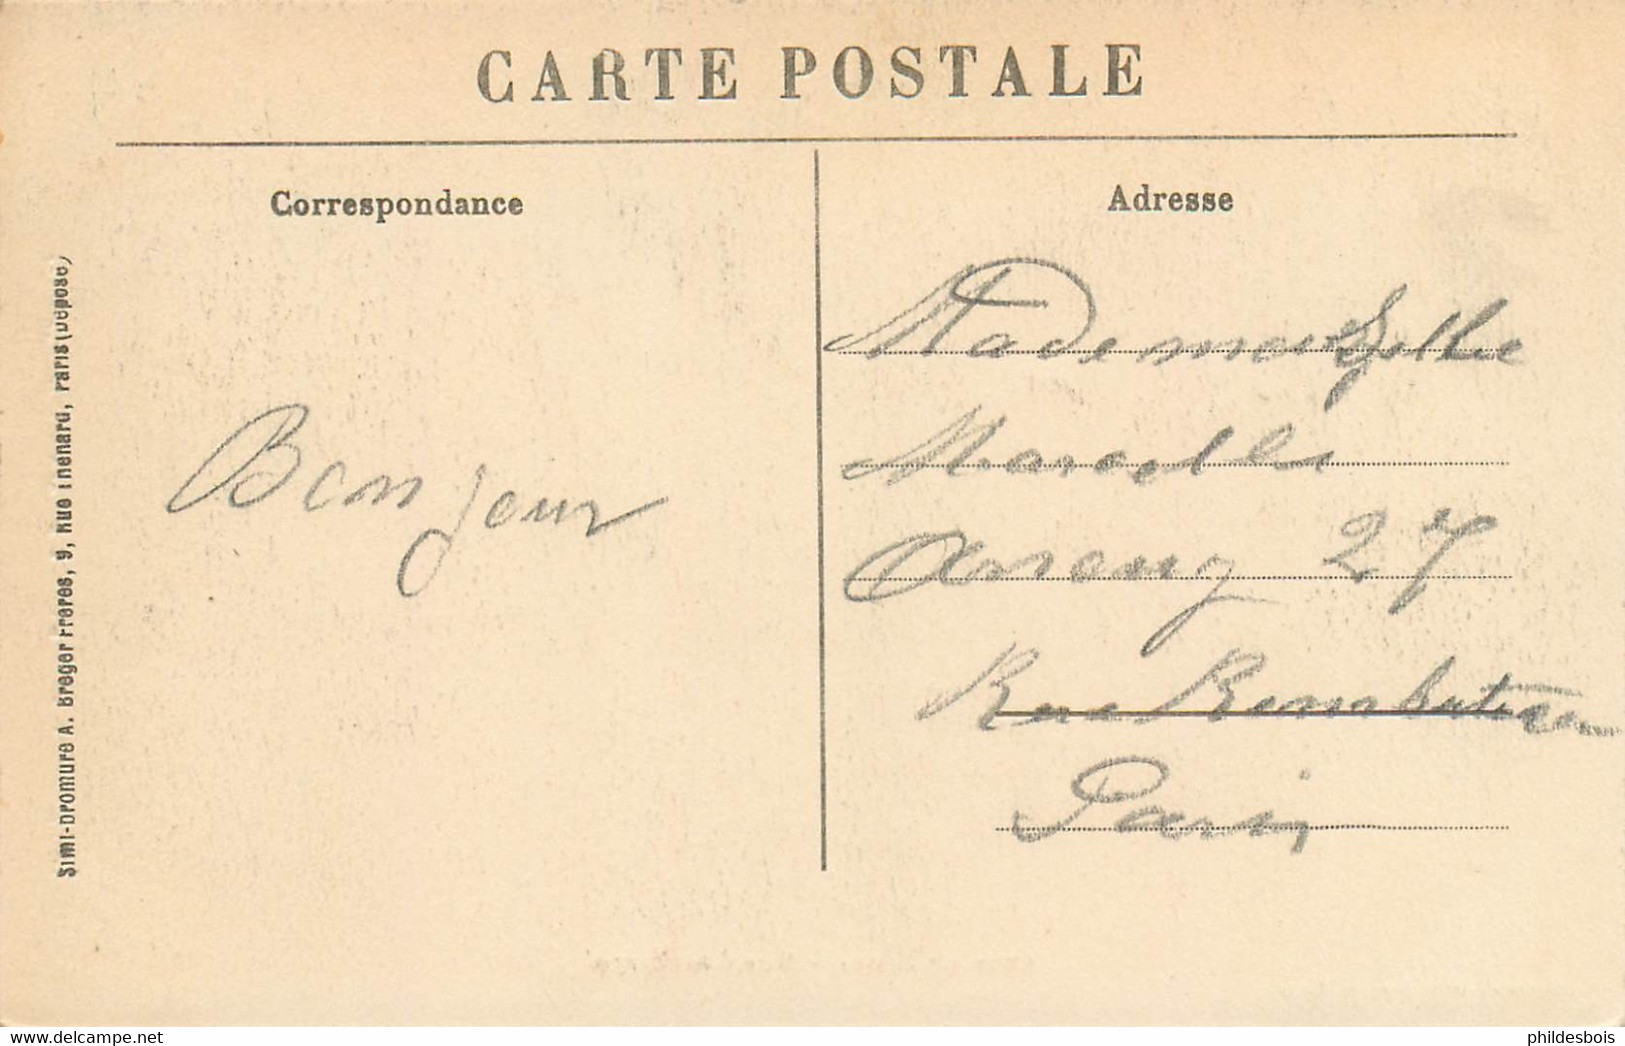 CARTE POSTALE
Correspondance
Adresse
Bonjour
Mademoiselle
Marcelle
27
Rue Rambuteau
Paris
Simi-Bromure A. Breger Frères, 9, Rue Thénard, Paris (Déposé)
www.delcampe.net
phildesbois